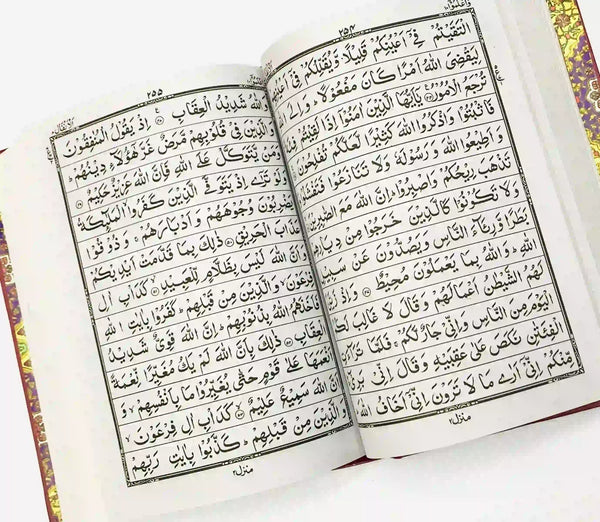 ۲۵۴
التَقَيْتُمْ فِىْٓ اَعْيُنِكُمْ قَلِيْلًا وَّيُقَلِّلُكُمْ فِىْٓ
لِيَقْضِىَ اللّٰهُ اَمْرًا كَانَ مَفْعُوْلًا ؕ وَاِلَى
تُرْجَعُ الْاُمُوْرُ ﴿۴۴﴾ يٰۤاَيُّهَا الَّذِيْنَ اٰمَنُوْۤا اِذَا لَقِيْتُمْ
فَاثْبُتُوْا وَاذْكُرُوا اللّٰهَ كَثِيْرًا لَّعَلَّكُمْ تُفْلِحُوْنَ
وَاَطِيْعُوا اللّٰهَ وَرَسُوْلَهٗ وَلَا تَنَازَعُوْا
تَذْهَبَ رِيْحُكُمْ وَاصْبِرُوْا ؕ اِنَّ اللّٰهَ مَعَ الصّٰبِرِيْنَ
وَلَا تَكُوْنُوْا كَالَّذِيْنَ خَرَجُوْا مِنْ
بَطَرًا وَّرِئَآءَ النَّاسِ وَيَصُدُّوْنَ عَنْ
اللّٰهِ ؕ وَاللّٰهُ بِمَا يَعْمَلُوْنَ مُحِيْطٌ ﴿۴۷﴾ وَاِذْ
لَهُمُ الشَّيْطٰنُ اَعْمَالَهُمْ وَقَالَ لَا غَالِبَ
الْيَوْمَ مِنَ النَّاسِ وَاِنِّىْ جَارٌ لَّكُمْ ۚ فَلَمَّا
الْفِئَتٰنِ نَكَصَ عَلٰى عَقِبَيْهِ وَقَالَ اِنِّىْ
مِّنْكُمْ اِنِّىْۤ اَرٰى مَا لَا تَرَوْنَ اِنِّىْۤ اَخَافُ اللّٰهَ
منزل۲
۲۵۵
وَاللّٰهُ شَدِيْدُ الْعِقَابِ ﴿۴۸﴾ اِذْ يَقُوْلُ الْمُنٰفِقُوْنَ
وَالَّذِيْنَ فِىْ قُلُوْبِهِمْ مَّرَضٌ غَرَّ هٰٓؤُلَآءِ دِيْنُهُمْ ؕ
وَمَنْ يَّتَوَكَّلْ عَلَى اللّٰهِ فَاِنَّ اللّٰهَ عَزِيْزٌ حَكِيْمٌ ﴿۴۹﴾
وَلَوْ تَرٰٓى اِذْ يَتَوَفَّى الَّذِيْنَ كَفَرُوا الْمَلٰٓئِكَةُ
يَضْرِبُوْنَ وُجُوْهَهُمْ وَاَدْبَارَهُمْ ۚ وَذُوْقُوْا
عَذَابَ الْحَرِيْقِ ﴿۵۰﴾ ذٰلِكَ بِمَا قَدَّمَتْ اَيْدِيْكُمْ
وَاَنَّ اللّٰهَ لَيْسَ بِظَلَّامٍ لِّلْعَبِيْدِ ﴿۵۱﴾ كَدَاْبِ اٰلِ
فِرْعَوْنَ ۙ وَالَّذِيْنَ مِنْ قَبْلِهِمْ ؕ كَفَرُوْا بِاٰيٰتِ اللّٰهِ
فَاَخَذَهُمُ اللّٰهُ بِذُنُوْبِهِمْ ؕ اِنَّ اللّٰهَ قَوِىٌّ شَدِيْدُ
الْعِقَابِ ﴿۵۲﴾ ذٰلِكَ بِاَنَّ اللّٰهَ لَمْ يَكُ مُغَيِّرًا نِّعْمَةً
اَنْعَمَهَا عَلٰى قَوْمٍ حَتّٰى يُغَيِّرُوْا مَا بِاَنْفُسِهِمْ ۙ وَ
اَنَّ اللّٰهَ سَمِيْعٌ عَلِيْمٌ ﴿۵۳﴾ كَدَاْبِ اٰلِ فِرْعَوْنَ ۙ
وَالَّذِيْنَ مِنْ قَبْلِهِمْ ؕ كَذَّبُوْا بِاٰيٰتِ رَبِّهِمْ
منزل۲